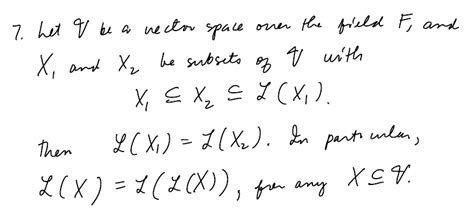 7. Let 𝒱 be a vector space over the field F, and
X₁ and X₂ be subsets of 𝒱 with
X₁ ⊆ X₂ ⊆ ℒ(X₁).
Then ℒ(X₁) = ℒ(X₂). In particular,
ℒ(X) = ℒ(ℒ(X)), for any X ⊆ 𝒱.